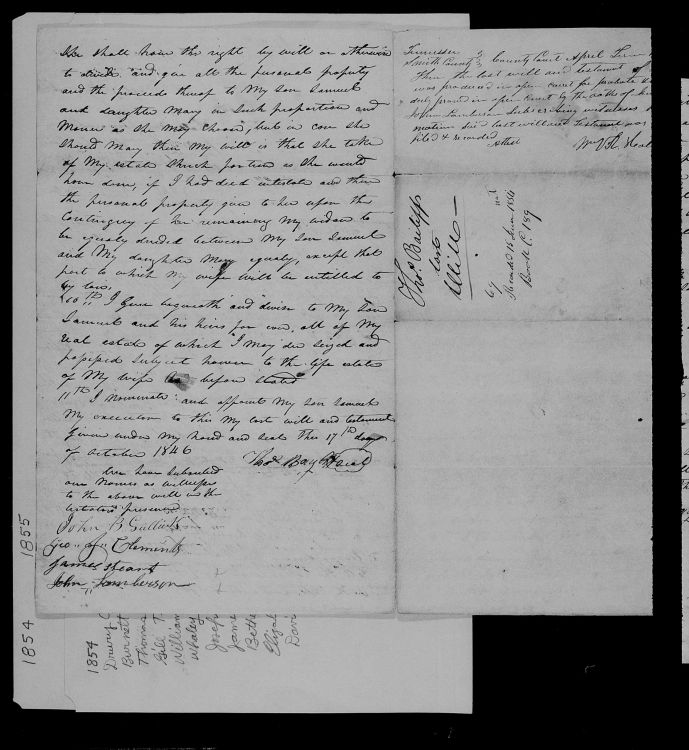 She shall have the right by will or otherwise
to divide and give all the personal property
and the proceeds thereof to My Son Samuel
and daughter Mary in such proportion and
Manner as she may choose, but in case she
should Marry then My will is that she take
of My estate such portion as she would
have done, if I had died intestate and then
the personal property given to her upon the
Contingency of her remaining My widow to
be equaly divided between My Son Samuel
and My daughter Mary equaly, except that
part to which my wife will be entitled to
by law.
10th I Give bequeath and devise to My Son
Samuel and his heirs for ever, all of My
real estate of which I may die seized and
possessed subject however to the life estate
of My wife as before stated
11th I nominate and appoint My Son Samuel
My executor to this My last will and testament
Given under My hand and seal this 17th day
of October 1846
Thos Bay seal
We have subscribed
our Names as witnesses
to the above will in the
testators presence
John B
Geo Clements
James Heart
John Lamberson
Tennessee
Smith County County Court April Term
Then the last will and testament of
was produced in open Court for probate
duly proved in open Court by the oaths of
John Lamberson subscribing witnesses
motion said last will and testament was
filed & recorded
Attest
Wm V. R.
Thos
last
Will
Recorded 15 June 1854
Book P. 189
1854 1855
1854
Drury
Burnett
Thomas
Bill T
William
Whaley
Josep
Jame
Bethe
Elizab
Davi